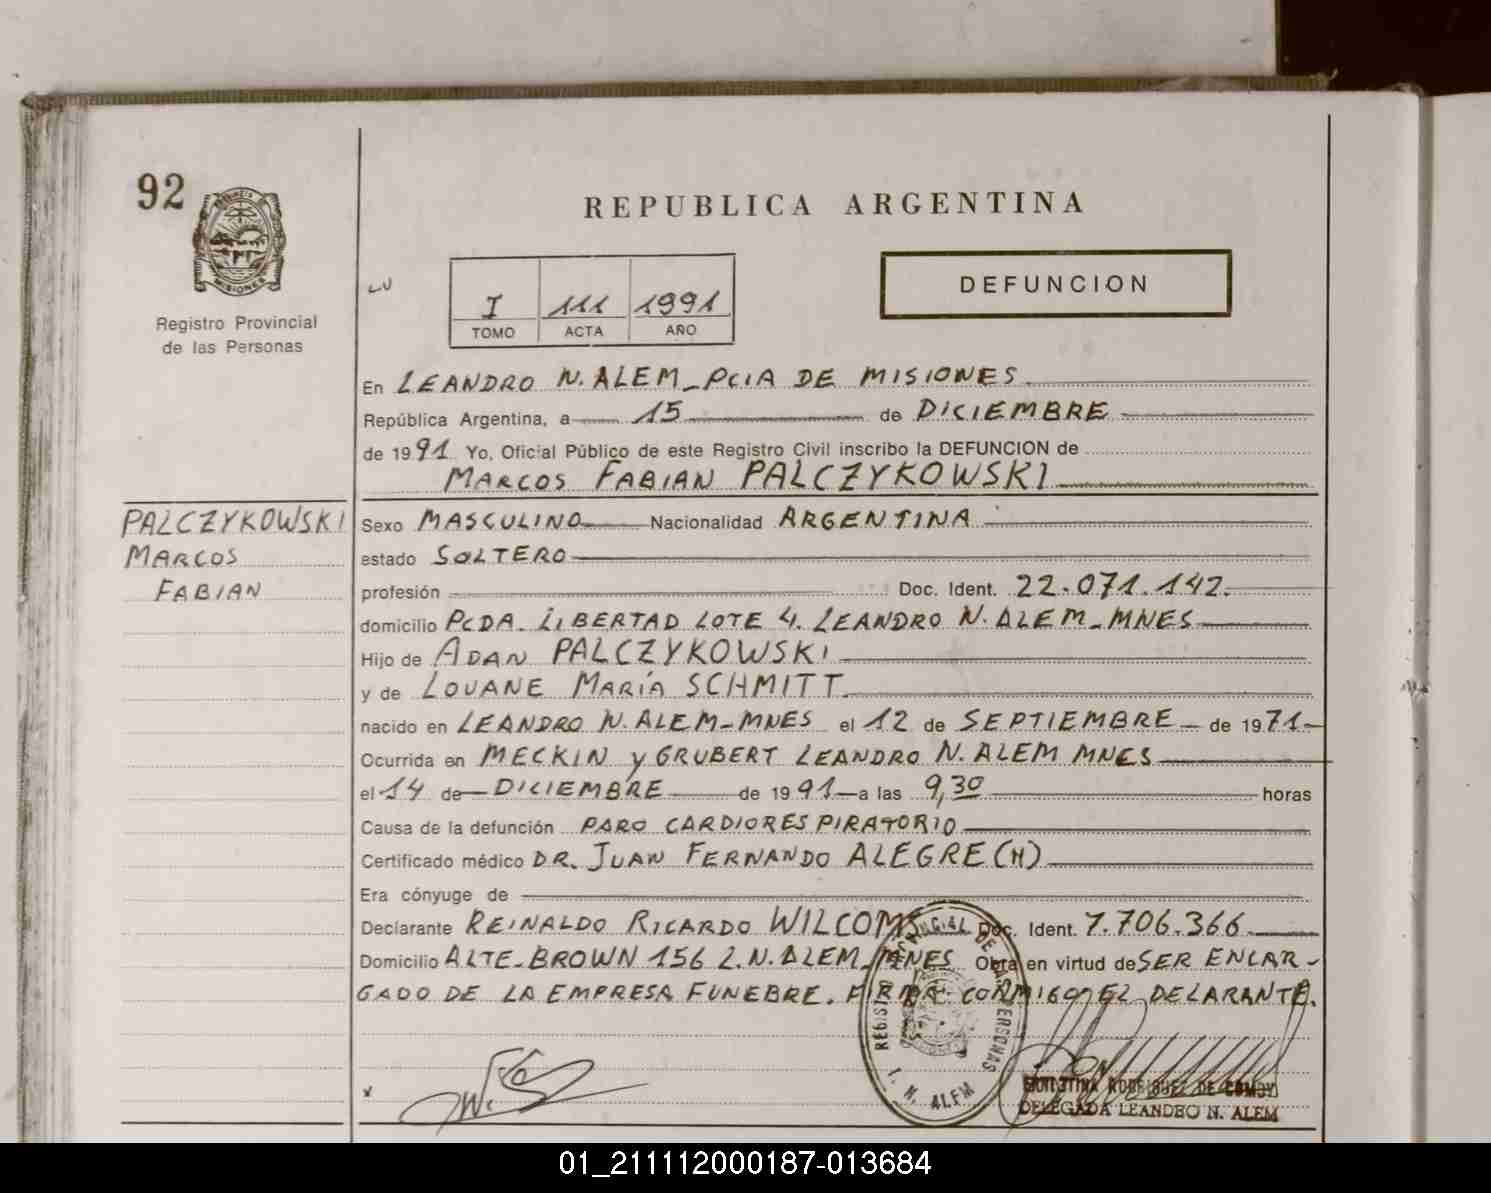 92
REPUBLICA ARGENTINA
MISIONES
Registro Provincial
de las Personas
I 111 1991
TOMO ACTA AÑO
DEFUNCION
En LEANDRO N. ALEM - PCIA DE MISIONES
República Argentina, a 15 de DICIEMBRE
de 1991 Yo, Oficial Público de este Registro Civil inscribo la DEFUNCION de
MARCOS FABIAN PALCZYKOWSKI
PALCZYKOWSKI
MARCOS
FABIAN
Sexo MASCULINO Nacionalidad ARGENTINA
estado SOLTERO
profesión Doc. Ident. 22.071.142.
domicilio PCDA. LIBERTAD LOTE 4. LEANDRO N. ALEM - MNES
Hijo de ADAN PALCZYKOWSKI
y de LOUANE MARÍA SCHMITT
nacido en LEANDRO N. ALEM - MNES el 12 de SEPTIEMBRE de 1971
Ocurrida en MECKIN y GRUBERT LEANDRO N. ALEM MNES
el 14 de DICIEMBRE de 1991 a las 9,30 horas
Causa de la defunción PARO CARDIORESPIRATORIO
Certificado médico DR. JUAN FERNANDO ALEGRE (H)
Era cónyuge de
Declarante REINALDO RICARDO WILCOMS Doc. Ident. 7.706.366
Domicilio ALTE. BROWN 156 L. N. ALEM - MNES Obra en virtud de SER ENCAR-
GADO DE LA EMPRESA FUNEBRE. FIRMA CONMIGO EL DELARANTE.
REGISTRO PROVINCIAL DE LAS PERSONAS
L. N. ALEM
RODRIGUEZ DE
DELEGADA LEANDRO N. ALEM
01_211112000187-013684